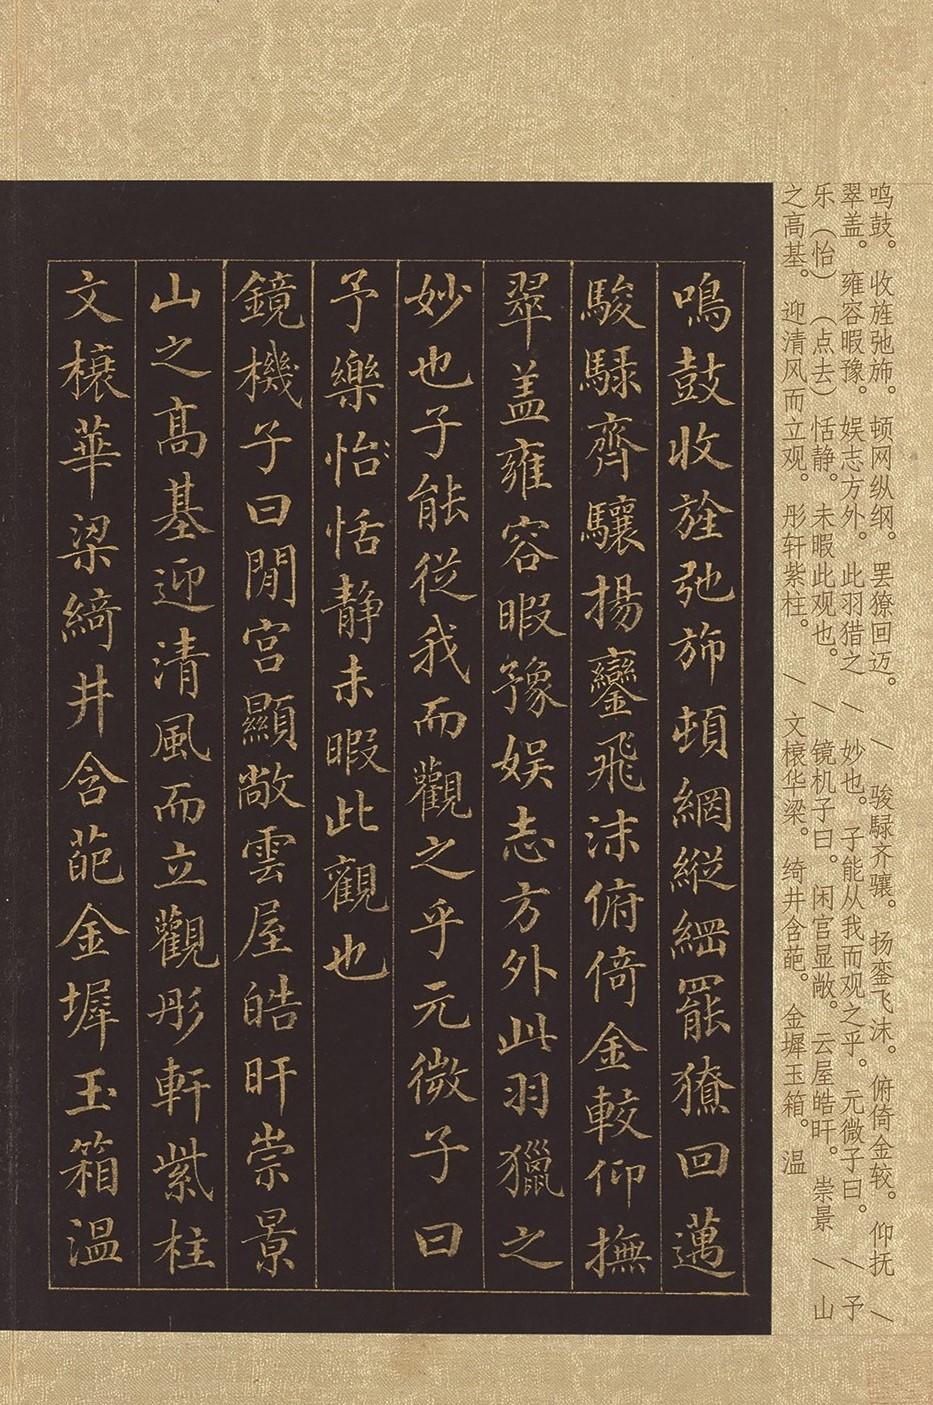 鸣鼓。收旌弛斾。顿网纵纲。罢獠回迈。/骏騄齐骧。扬銮飞沫。俯倚金较。仰抚/
翠盖。雍容暇豫。娱志方外。此羽猎之/妙也。子能从我而观之乎。元微子曰。/予
乐（怡）（点去）恬静。未暇此观也。/镜机子曰。闲宫显敞。云屋皓旰。崇景/山
之高基。迎清风而立观。彤轩紫柱。/文榱华梁。绮井含葩。金墀玉箱。温
鳴鼓收旌弛斾頓網縱綱罷獠回邁
駿騄齊驤揚鑾飛沫俯倚金較仰撫
翠盖雍容暇豫娱志方外此羽獵之
妙也子能從我而觀之乎元微子曰
予樂怡恬静未暇此觀也
鏡機子曰閒宫顯敞雲屋皓旰崇景
山之髙基迎清風而立觀彤軒紫柱
文榱華梁綺井含葩金墀玉箱温